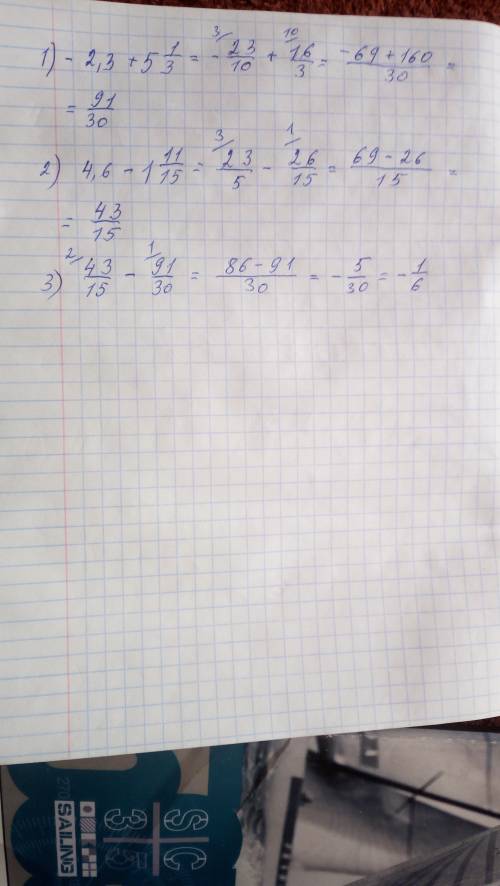 1) - 2,3 + 5 1/3 = - 3/ 23/10 + 10/ 16/3 = -69 + 160/30 =
= 91/30
2) 4,6 - 1 11/15 = 3/ 23/5 - 1/ 26/15 = 69 - 26/15 =
= 43/15
3) 2/ 43/15 - 1/ 91/30 = 86 - 91/30 = - 5/30 = - 1/6
270
SAILING
SC
35